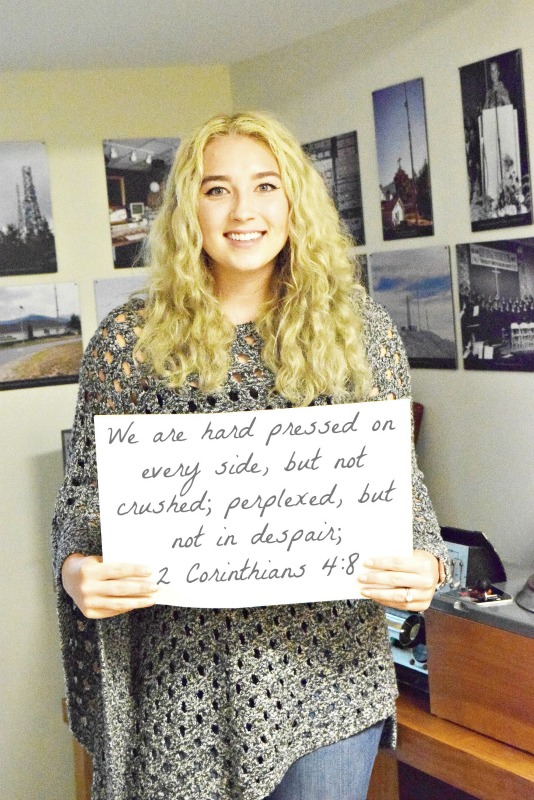 We are hard pressed on
every side, but not
crushed; perplexed, but
not in despair;
2 Corinthians 4:8